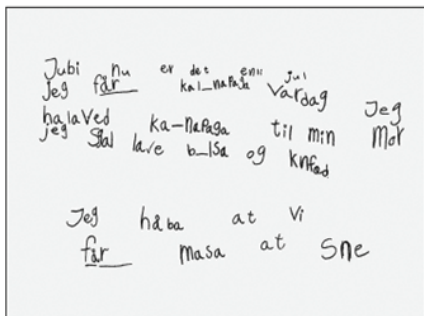 Jubi nu er det enu jul
jeg får kal_napaga Vardag
halaved ka-napaga til min Jeg
jeg Skal lave b_lsa og knfad Mor
Jeg håba at Vi
får masa at Sne